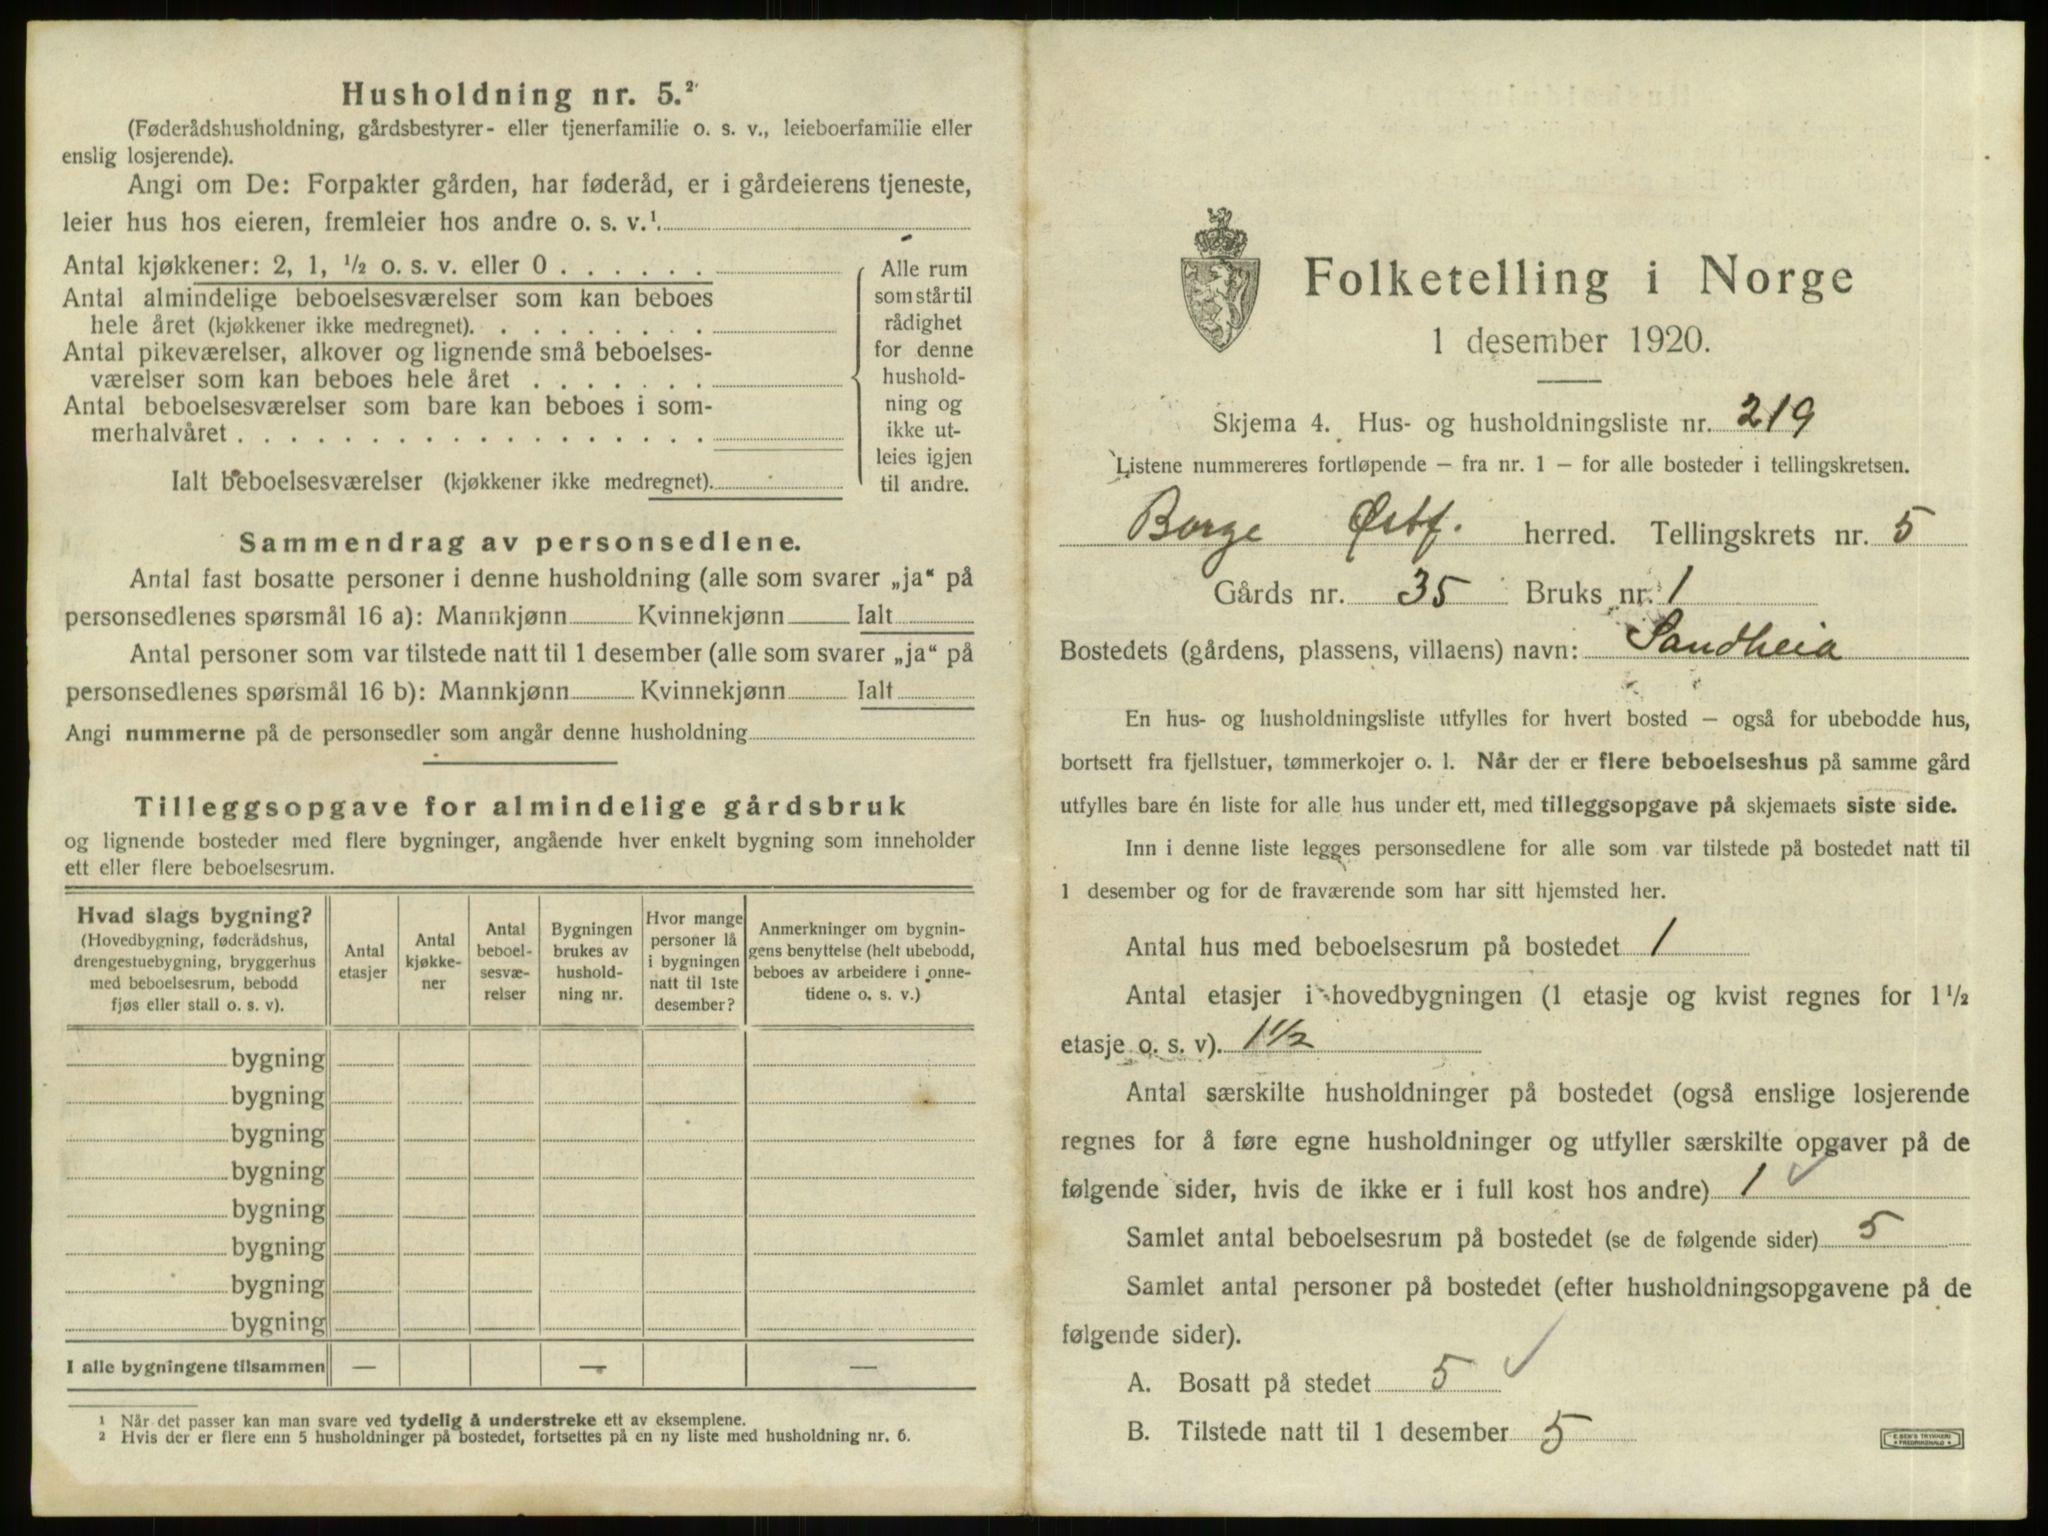 Husholdning nr. 5.²
(Føderådshusholdning, gårdsbestyrer- eller tjenerfamilie o. s. v., leieboerfamilie eller
enslig losjerende).
Angi om De: Forpakter gården, har føderåd, er i gårdeierens tjeneste,
leier hus hos eieren, fremleier hos andre o. s. v.¹
Antal kjøkkener: 2, 1, ½ o. s. v. eller 0
Antal almindelige beboelsesværelser som kan beboes
hele året (kjøkkener ikke medregnet).
Antal pikeværelser, alkover og lignende små beboelses-
værelser som kan beboes hele året
Antal beboelsesværelser som bare kan beboes i som-
merhalvåret
Ialt beboelsesværelser (kjøkkener ikke medregnet).
Alle rum
som står til
rådighet
for denne
hushold-
ning og
ikke ut-
leies igjen
til andre.
Sammendrag av personsedlene.
Antal fast bosatte personer i denne husholdning (alle som svarer „ja“ på
personsedlenes spørsmål 16 a): Mannkjønn Kvinnekjønn Ialt
Antal personer som var tilstede natt til 1 desember (alle som svarer „ja“ på
personsedlenes spørsmål 16 b): Mannkjønn Kvinnekjønn Ialt
Angi nummerne på de personsedler som angår denne husholdning
Tilleggsopgave for almindelige gårdsbruk
og lignende bosteder med flere bygninger, angående hver enkelt bygning som inneholder
ett eller flere beboelsesrum.
Hvad slags bygning?
(Hovedbygning, føderådshus,
drengestuebygning, bryggerhus
med beboelsesrum, bebodd
fjøs eller stall o. s. v).
Antal
etasjer
Antal
kjøkke-
ner
Antal
beboel-
sesvæ-
relser
Bygningen
brukes av
hushold-
ning nr.
Hvor mange
personer lå
i bygningen
natt til 1ste
desember?
Anmerkninger om bygnin-
gens benyttelse (helt ubebodd,
beboes av arbeidere i onne-
tidene o. s. v.)
bygning
bygning
bygning
bygning
bygning
bygning
bygning
bygning
I alle bygningene tilsammen — — —
¹ Når det passer kan man svare ved tydelig å understreke ett av eksemplene.
² Hvis der er flere enn 5 husholdninger på bostedet, fortsettes på en ny liste med husholdning nr. 6.
Folketelling i Norge
1 desember 1920.
Skjema 4. Hus- og husholdningsliste nr. 219
Listene nummereres fortløpende — fra nr. 1 — for alle bosteder i tellingskretsen.
Borge Østf. herred. Tellingskrets nr. 5
Gårds nr. 35 Bruks nr. 1
Bostedets (gårdens, plassens, villaens) navn: Sandheia
En hus- og husholdningsliste utfylles for hvert bosted — også for ubebodde hus,
bortsett fra fjellstuer, tømmerkojer o. l. Når der er flere beboelseshus på samme gård
utfylles bare én liste for alle hus under ett, med tilleggsopgave på skjemaets siste side.
Inn i denne liste legges personsedlene for alle som var tilstede på bostedet natt til
1 desember og for de fraværende som har sitt hjemsted her.
Antal hus med beboelsesrum på bostedet 1
Antal etasjer i hovedbygningen (1 etasje og kvist regnes for 1½
etasje o. s. v). 1½
Antal særskilte husholdninger på bostedet (også enslige losjerende
regnes for å føre egne husholdninger og utfyller særskilte opgaver på de
følgende sider, hvis de ikke er i full kost hos andre) 1 ✓
Samlet antal beboelsesrum på bostedet (se de følgende sider) 5
Samlet antal personer på bostedet (efter husholdningsopgavene på de
følgende sider).
A. Bosatt på stedet 5 ✓
B. Tilstede natt til 1 desember 5
E. SEM'S TRYKKERI
FREDRIKSHALD